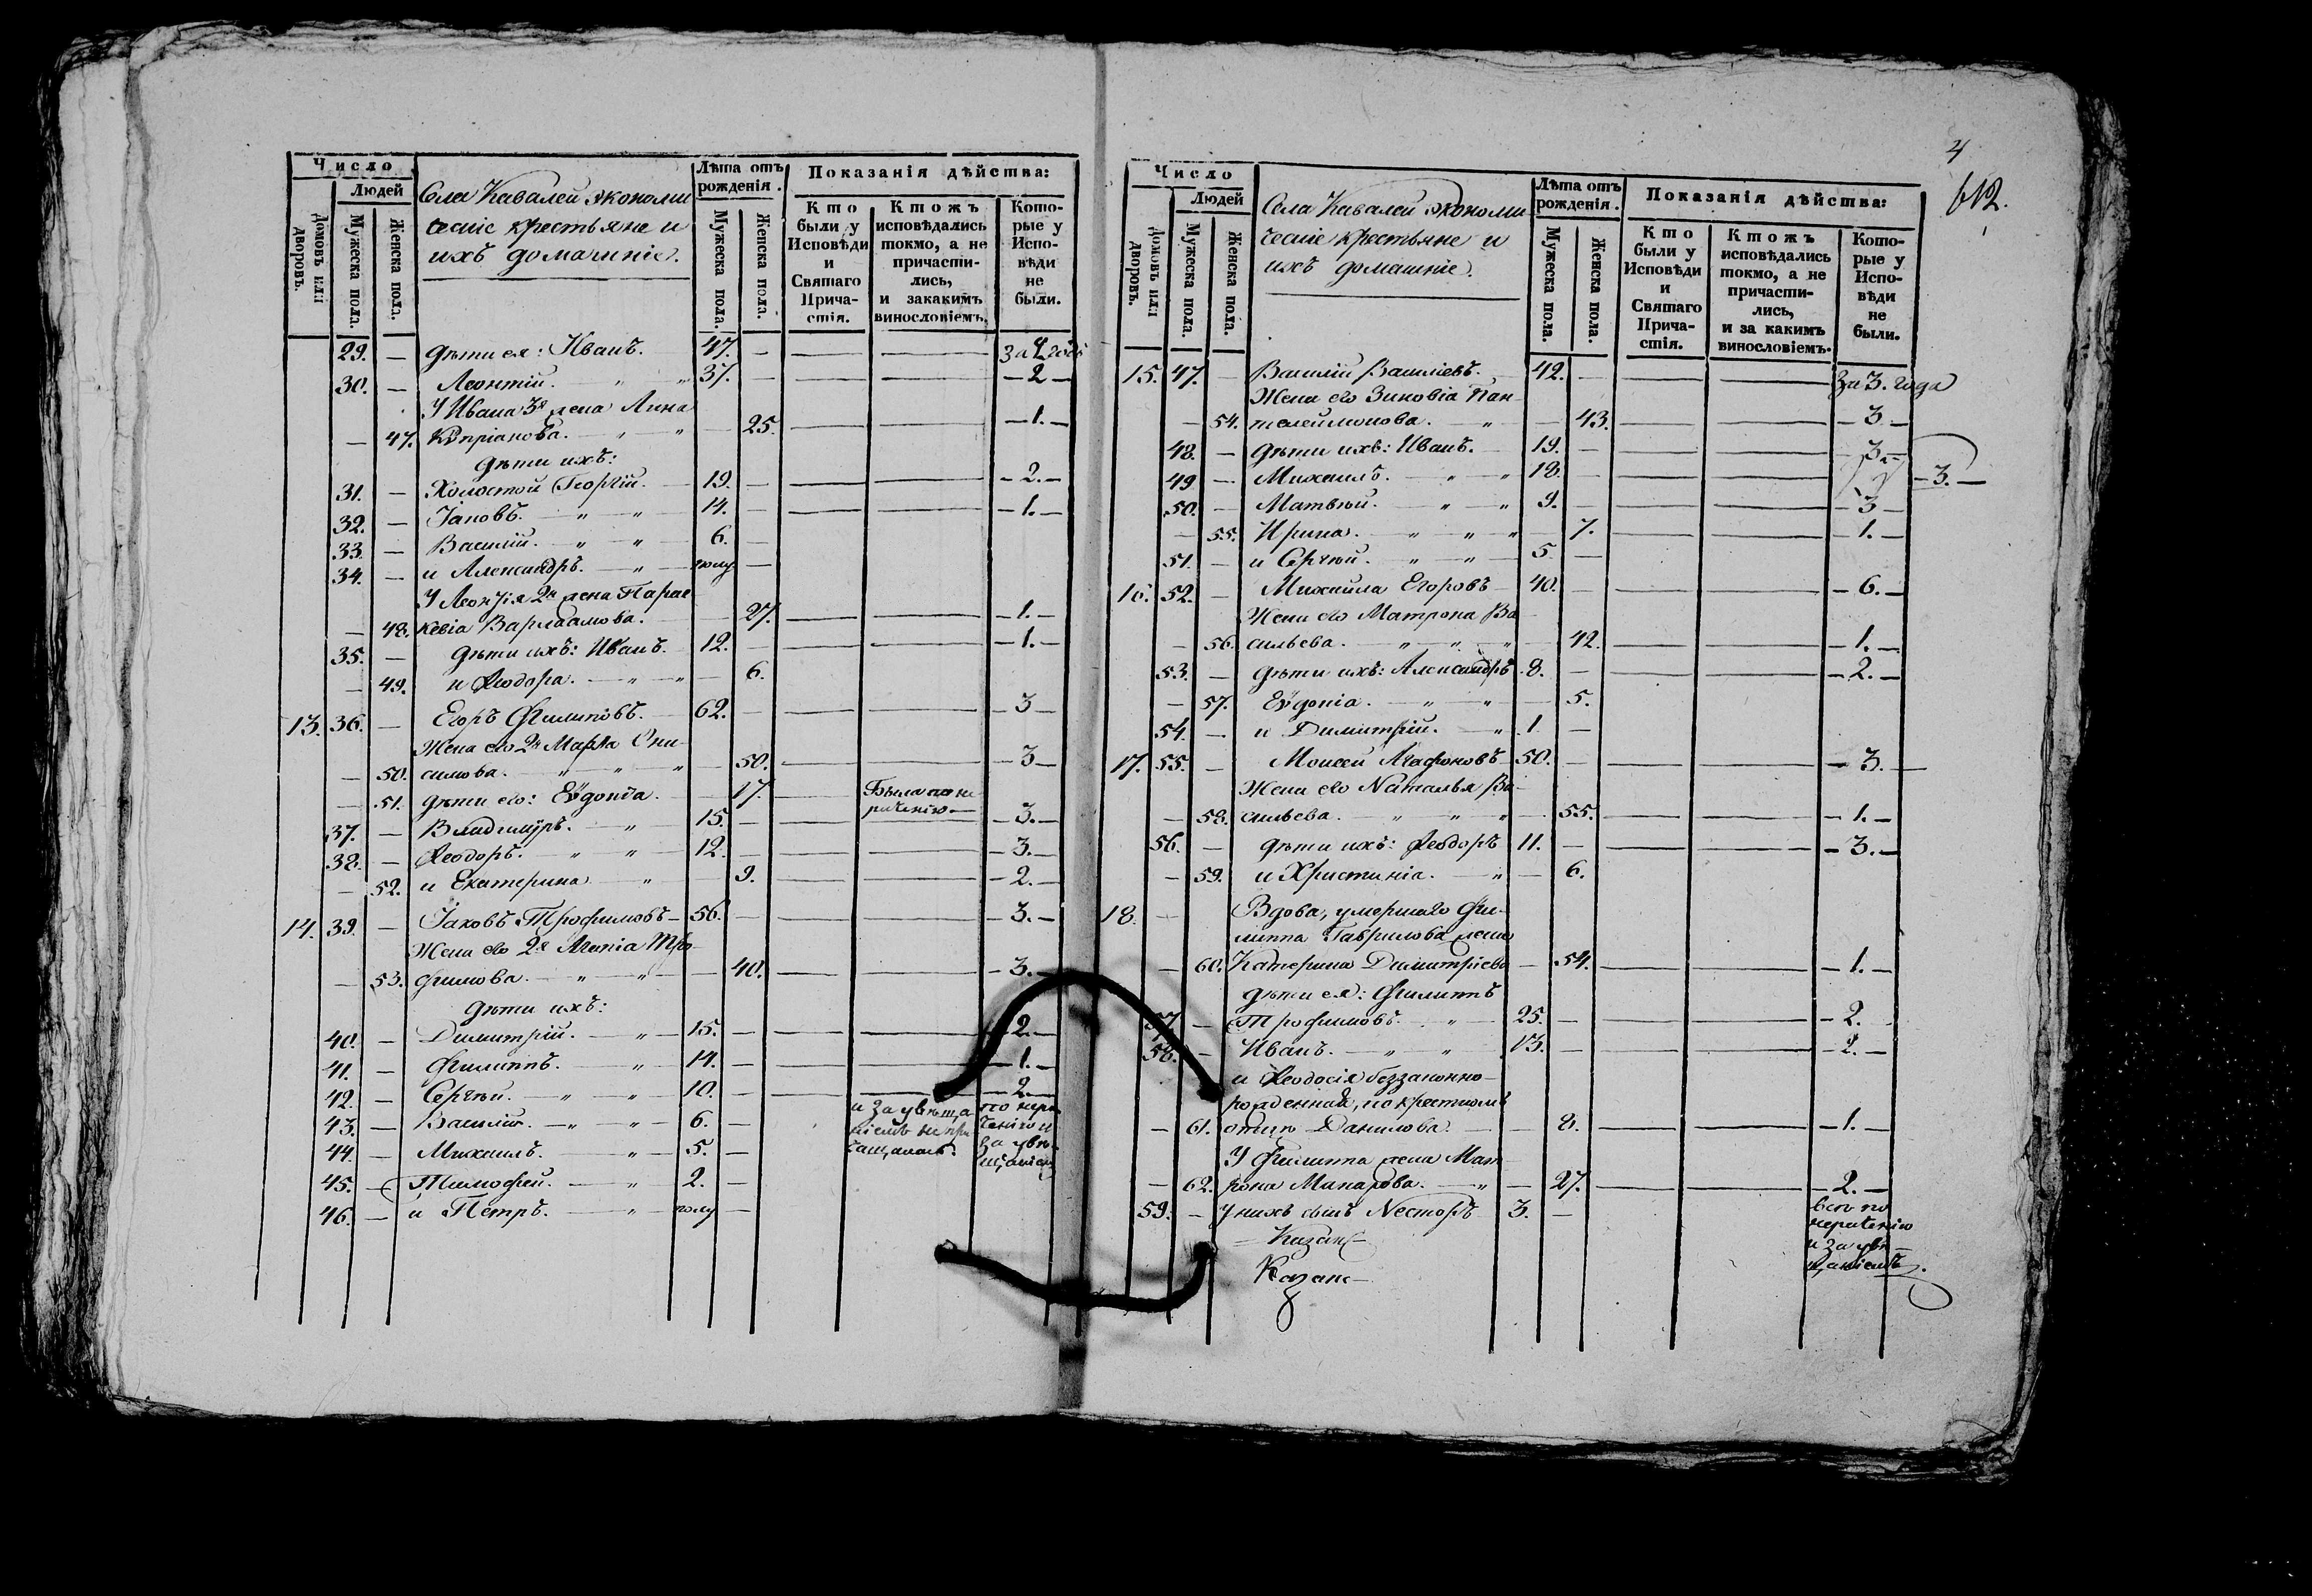 Число
Людей
Домовъ или дворовъ.
Мужеска пола.
Женска пола.
Села Кавалей экономи
ческіе крестьяне и
ихъ домашніе.
Лѣта отъ рожденія.
Мужеска пола.
Женска пола.
Показанія дѣйства:
Кто были у Исповѣди и Святаго Причастія.
Ктожъ исповѣдались токмо, а не причастились, и закакимъ винословіемъ.
Которые у Исповѣди не были.
29. — дѣти ея: Иванъ. 47. — — — за 2 года
30. — Леонтій. " " 37. — — — — 2 —
У Ивана 3я жена Анна
— 47. Кѵпріанова. — " " — 25. — — — 1. —
дѣти ихъ:
31. — Холостой Георгій. — 19. — — — — 2. —
32. — Іаковъ. — " — " — 14. — — — — 1. —
33. — Василій. — " — " — 6. —
34. — и Александръ. — " — полу —
У Леонтія 2я жена Парас
— 48. кевіа Варлаамова. — 27. — — — 1. —
35. — дѣти ихъ: Иванъ. 12. — — — — 1. —
— 49. и Ѳеодора. — " — " — 6.
13. 36. — Егоръ Филиповъ. — 62. — — — — 3 —
Жена его 2я Марѳа Они
— 50. симова. — " — " — " — 50. — — — 3 —
— 51. дѣти его: Еѵдокіа. — 17. — Была по не
рачению —
37. — Владимиръ. — " — 15. — — — — 3. —
38. — Ѳеодоръ. — " — " — 12. — — — — 3. —
— 52. и Екатерина — " — 9. — — — 2. —
14. 39. — Іаковъ Трофимовъ — 56. — — — — 3. —
Жена его 2я Агапіа Тро
— 53. фимова. — " — " — — 40. — — — 3. —
дѣти ихъ:
40. — Димитрій. — " — 15. — — — — 2. —
41. — Филиппъ. — " — 14. — — — — 1. —
42. — Сергѣй. — " — " — 10. — — — — 2 —
43. — Василій. — " — " — 6. —
44. — Михаилъ. — " — 5. —
45. — Тимофей. — " — 2. —
46. — и Петръ. — " — полу —
и за увѣща
ніемъ не при
чащалась.
по нера
ченію и
за увѣ
щаніемъ
4
612.
Число
Людей
Домовъ или дворовъ.
Мужеска пола.
Женска пола.
Села Кавалей экономи
ческіе крестьяне и
ихъ домашніе.
Лѣта отъ рожденія.
Мужеска пола.
Женска пола.
Показанія дѣйства:
Кто были у Исповѣди и Святаго Причастія.
Ктожъ исповѣдались токмо, а не причастились, и за какимъ винословіемъ.
Которые у Исповѣди не были.
15. 47. Василій Васильевъ. — 42. — — — за 3. года
Жена его Зиновіа Пан
— 54. телеимонова. " — 43. — — — 3 —
48. — дѣти ихъ: Иванъ. — 19. — — — — 3 —
49 — Михаилъ. — " " 18. — — — — 3. —
50. — Матвѣй. — " " 9. — — — — 3 —
— 55. Ирина. — " — " " — 7. — — — 1. —
51. — и Сергѣй. — " — " — 5 —
16. 52. — Михайла Егоровъ — 40. — — — — 6. —
Жена его Матрона Ва
— 56. сильева. — " — " — " — 42. — — — 1. —
53. — дѣти ихъ: Александръ 8. — — — — 2. —
— 57. Еѵдокіа. — " — " — 5.
54. — и Димитрій. — " 1 —
17. 55. — Моисей Агафоновъ — 50. — — — — 3. —
Жена его Наталья Ва
— 58. сильева. — " — " — " — 55. — — — 1. —
56. — дѣти ихъ: Ѳеодоръ 11. — — — — 3. —
— 59. и Христиніа. — " — 6.
18. — Вдова, умершаго Фи
липпа Гаврилова жена
— 60. Катерина Димитріева — 54. — — — 1. —
дѣти ея: Филиппъ
57. — Трофимовъ. — " — 25. — — — — 2.
58. — Иванъ. — " — " — 13. — — — — 2. —
и Ѳеодосія беззаконно
рожденная, по крестномъ
— 61. отцѣ Данилова. — — 8. — — — 1. —
У Филиппа жена Мат
— 62. рона Макарова. — " — 27. — — — 2. —
59. — У нихъ сынъ Несторъ — 3. —
всѣ по
нераченію
и за увѣ
щаніемъ.
— Казанс —
Казанс —